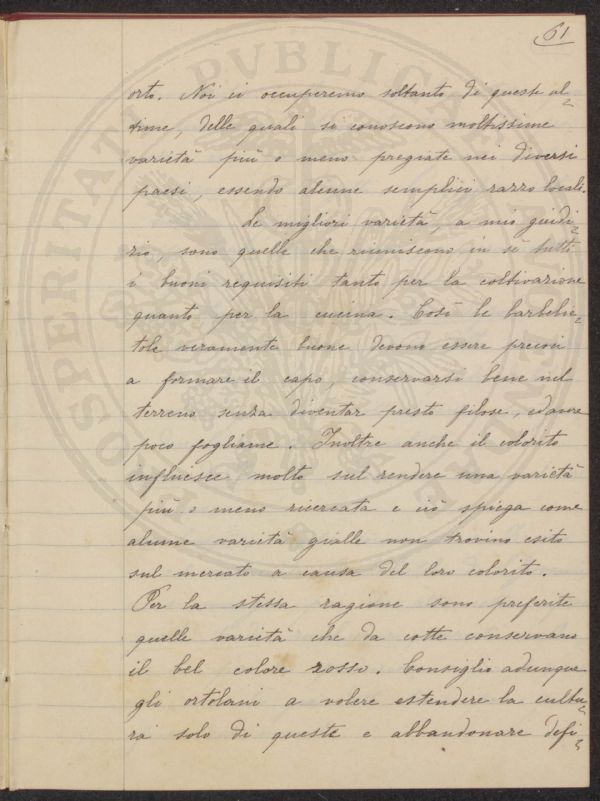 61
orto. Noi ci occuperemo soltanto di queste ul=
time, delle quali si conoscono moltissime
varietà più o meno pregiate nei diversi
paesi, essendo alcune semplici razze locali.
Le migliori varietà, a mio giudi=
zio, sono quelle che riuniscono in sè tutti
i buoni requisiti tanto per la coltivazione
quanto per la cucina. Così le barbabie=
tole veramente buone devono essere precoci
a formare il capo, conservarsi bene nel
terreno senza diventar presto filose, ed avere
poco fogliame. Inoltre anche il colorito
influisce molto sul rendere una varietà
più o meno ricercata e ciò spiega come
alcune varietà gialle non trovino esito
sul mercato a causa del loro colorito.
Per la stessa ragione sono preferite
quelle varietà che da cotte conservano
il bel colore rosso. Consiglio adunque
gli ortolani a volere estendere la cultu=
ra solo di queste e abbandonare defi=
PVBLICAE
PROSPERITATI